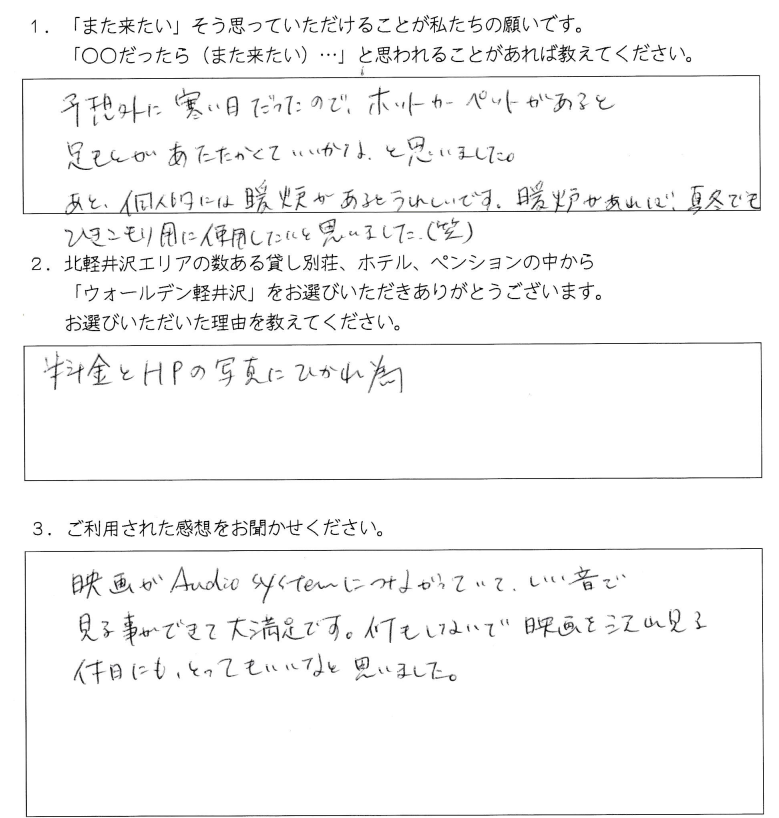 1．「また来たい」そう思っていただけることが私たちの願いです。
「〇〇だったら（また来たい）…」と思われることがあれば教えてください。
予想外に寒い日だったので、ホットカーペットがあると
足もとがあたたかくていいかな、と思いました。
あと、個人的には暖炉があるとうれしいです。暖炉があれば、真冬でも
ひきこもり用に使用したいと思いました。(笑)
2．北軽井沢エリアの数ある貸し別荘、ホテル、ペンションの中から
「ウォールデン軽井沢」をお選びいただきありがとうございます。
お選びいただいた理由を教えてください。
料金とHPの写真にひかれ為
3．ご利用された感想をお聞かせください。
映画がAudio systemにつながっていて、いい音で
見る事ができて大満足です。何もしないで映画を沢山見る
休日にも、とってもいいなと思いました。